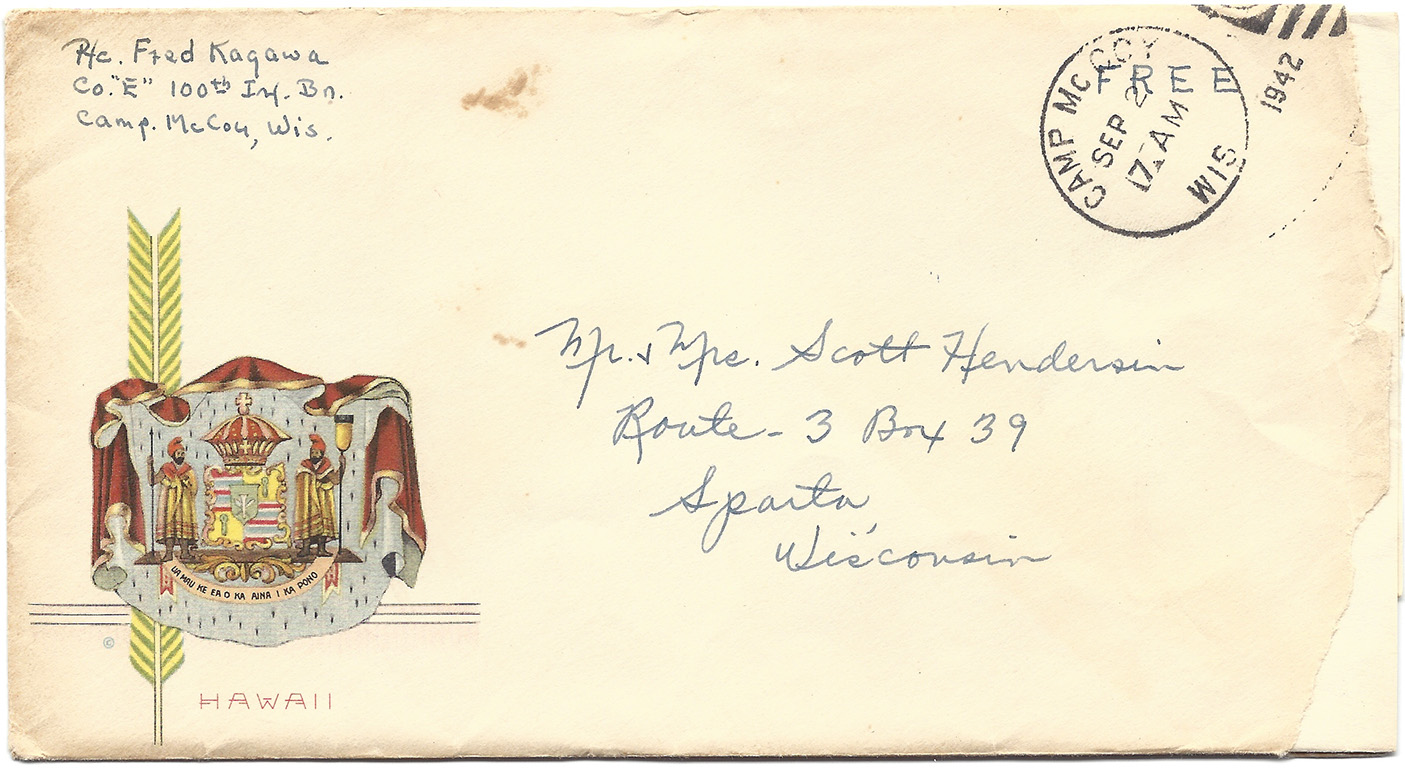 Pfc. Fred Kagawa
Co. "E" 100th Inf. Bn.
Camp. McCoy, Wis.
FREE
CAMP McCOY WIS
SEP 2
AM
1942
Mr. & Mrs. Scott Hendersin
Route - 3 Box 39
Sparta,
Wisconsin
UA MAU KE EA O KA AINA I KA PONO
©
HAWAII